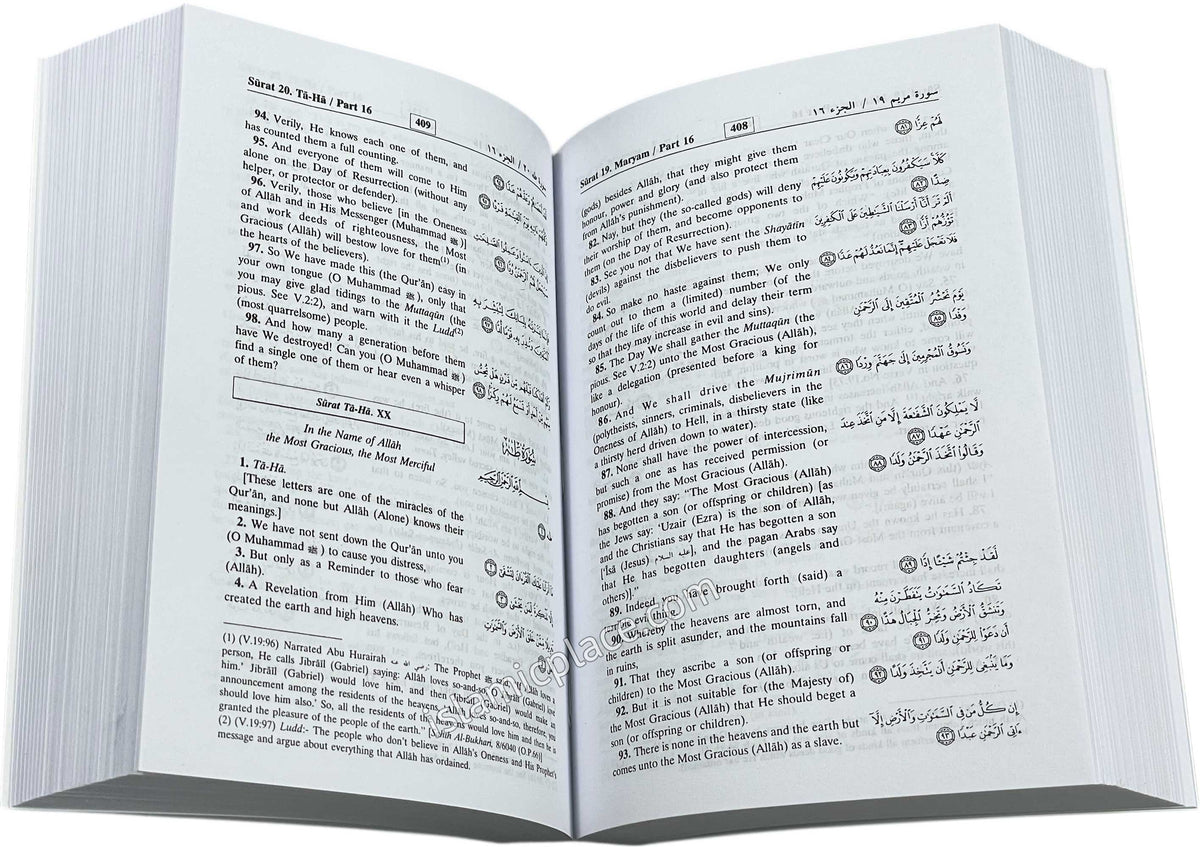 Sûrat 19. Maryam / Part 16
408
سورة مريم ١٩ / الجزء ١٦
(gods) besides Allâh, that they might give them
honour, power and glory (and also protect them
from Allâh's punishment).
82. Nay, but they (the so-called gods) will deny
their worship of them, and become opponents to
them (on the Day of Resurrection).
83. See you not that We have sent the Shayâtîn
(devils) against the disbelievers to push them to
do evil.
84. So make no haste against them; We only
count out to them a (limited) number of the
days of the life of this world and delay their term
so that they may increase in evil and sins).
85. The Day We shall gather the Muttaqûn (the
pious. See V.2:2) unto the Most Gracious (Allâh),
like a delegation (presented before a king for
honour).
86. And We shall drive the Mujrimûn
(polytheists, sinners, criminals, disbelievers in the
Oneness of Allâh) to Hell, in a thirsty state (like
a thirsty herd driven down to water).
87. None shall have the power of intercession,
but such a one as has received permission (or
promise) from the Most Gracious (Allâh).
88. And they say: "The Most Gracious (Allâh)
has begotten a son (or offspring or children) [as
the Jews say: 'Uzair (Ezra) is the son of Allâh,
and the Christians say that He has begotten a son
['Îsâ (Jesus) عليه السلام], and the pagan Arabs say
that He has begotten daughters (angels and
others)]."
89. Indeed you have brought forth (said) a
evil thing.
90. Whereby the heavens are almost torn, and
the earth is split asunder, and the mountains fall
in ruins,
91. That they ascribe a son (or offspring or
children) to the Most Gracious (Allâh).
92. But it is not suitable for (the Majesty of)
the Most Gracious (Allâh) that He should beget a
son (or offspring or children).
93. There is none in the heavens and the earth but
comes unto the Most Gracious (Allâh) as a slave.
لَهُمْ عِزًّا ٨١
كَلَّا سَيَكْفُرُونَ بِعِبَادَتِهِمْ وَيَكُونُونَ عَلَيْهِمْ
ضِدًّا ٨٢
أَلَمْ تَرَ أَنَّا أَرْسَلْنَا الشَّيَاطِينَ عَلَى الْكَافِرِينَ
تَؤُزُّهُمْ أَزًّا ٨٣
فَلَا تَعْجَلْ عَلَيْهِمْ إِنَّمَا نَعُدُّ لَهُمْ عَدًّا ٨٤
يَوْمَ نَحْشُرُ الْمُتَّقِينَ إِلَى الرَّحْمَٰنِ
وَفْدًا ٨٥
وَنَسُوقُ الْمُجْرِمِينَ إِلَىٰ جَهَنَّمَ وِرْدًا ٨٦
لَا يَمْلِكُونَ الشَّفَاعَةَ إِلَّا مَنِ اتَّخَذَ عِنْدَ
الرَّحْمَٰنِ عَهْدًا ٨٧
وَقَالُوا اتَّخَذَ الرَّحْمَٰنُ وَلَدًا ٨٨
لَقَدْ جِئْتُمْ شَيْئًا إِدًّا ٨٩
تَكَادُ السَّمَاوَاتُ يَتَفَطَّرْنَ مِنْهُ
وَتَنْشَقُّ الْأَرْضُ وَتَخِرُّ الْجِبَالُ هَدًّا ٩٠
أَنْ دَعَوْا لِلرَّحْمَٰنِ وَلَدًا ٩١
وَمَا يَنْبَغِي لِلرَّحْمَٰنِ أَنْ يَتَّخِذَ وَلَدًا ٩٢
إِنْ كُلُّ مَنْ فِي السَّمَاوَاتِ وَالْأَرْضِ إِلَّا
آتِي الرَّحْمَٰنِ عَبْدًا ٩٣
Sûrat 20. Tâ-Hâ / Part 16
409
94. Verily, He knows each one of them, and
has counted them a full counting.
95. And everyone of them will come to Him
alone on the Day of Resurrection (without any
helper, or protector or defender).
96. Verily, those who believe [in the Oneness
of Allâh and in His Messenger (Muhammad ﷺ)]
and work deeds of righteousness, the Most
Gracious (Allâh) will bestow love for them(1) (in
the hearts of the believers).
97. So We have made this (the Qur'ân) easy in
your own tongue (O Muhammad ﷺ), only that
you may give glad tidings to the Muttaqûn (the
pious. See V.2:2), and warn with it the Ludd(2)
(most quarrelsome) people.
98. And how many a generation before them
have We destroyed! Can you (O Muhammad ﷺ)
find a single one of them or hear even a whisper
of them?
Sûrat Tâ-Hâ. XX
In the Name of Allâh
the Most Gracious, the Most Merciful
سُورَةُ طه
1. Tâ-Hâ.
[These letters are one of the miracles of the
Qur'ân, and none but Allâh (Alone) knows their
meanings.]
2. We have not sent down the Qur'ân unto you
(O Muhammad ﷺ) to cause you distress,
3. But only as a Reminder to those who fear
(Allâh).
4. A Revelation from Him (Allâh) Who has
created the earth and high heavens.
(1) (V.19:96) Narrated Abu Hurairah رضي الله عنه: The Prophet ﷺ said, "If Allâh loves a
person, He calls Jibrâîl (Gabriel) saying: Allâh loves so-and-so,
him.' Jibrâîl (Gabriel) would love him, and then Jibrâîl (Gabriel) would make an
announcement among the residents of the heavens, loves so-and-so, therefore, you
should love him also.' So, all the residents of the heavens would love him and then he is
granted the pleasure of the people of the earth." Al-Bukhari, 8/6040 (O.P.66)]
(2) (V.19:97) Ludd:- The people who don't believe in Allâh's Oneness and His Prophet's
message and argue about everything that Allâh has ordained.
islamicplace.com